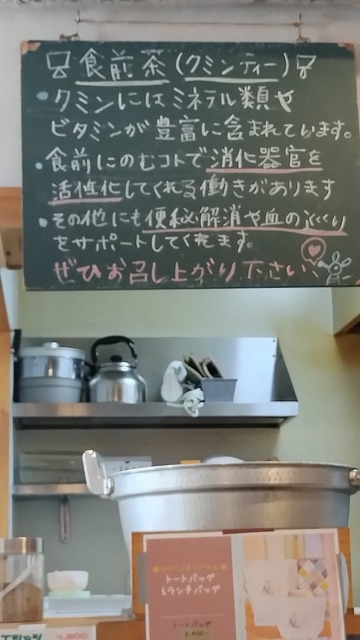 食前茶(クミンティー)
・クミンにはミネラル類や
ビタミンが豊富に含まれています。
・食前にのむコトで消化器官を
活性化してくれる働きがあります
・その他にも便秘解消や血のつくり
をサポートしてくれます。
ぜひお召し上がり下さい
トートバッグ
&ランチバッグ
トートバッグ